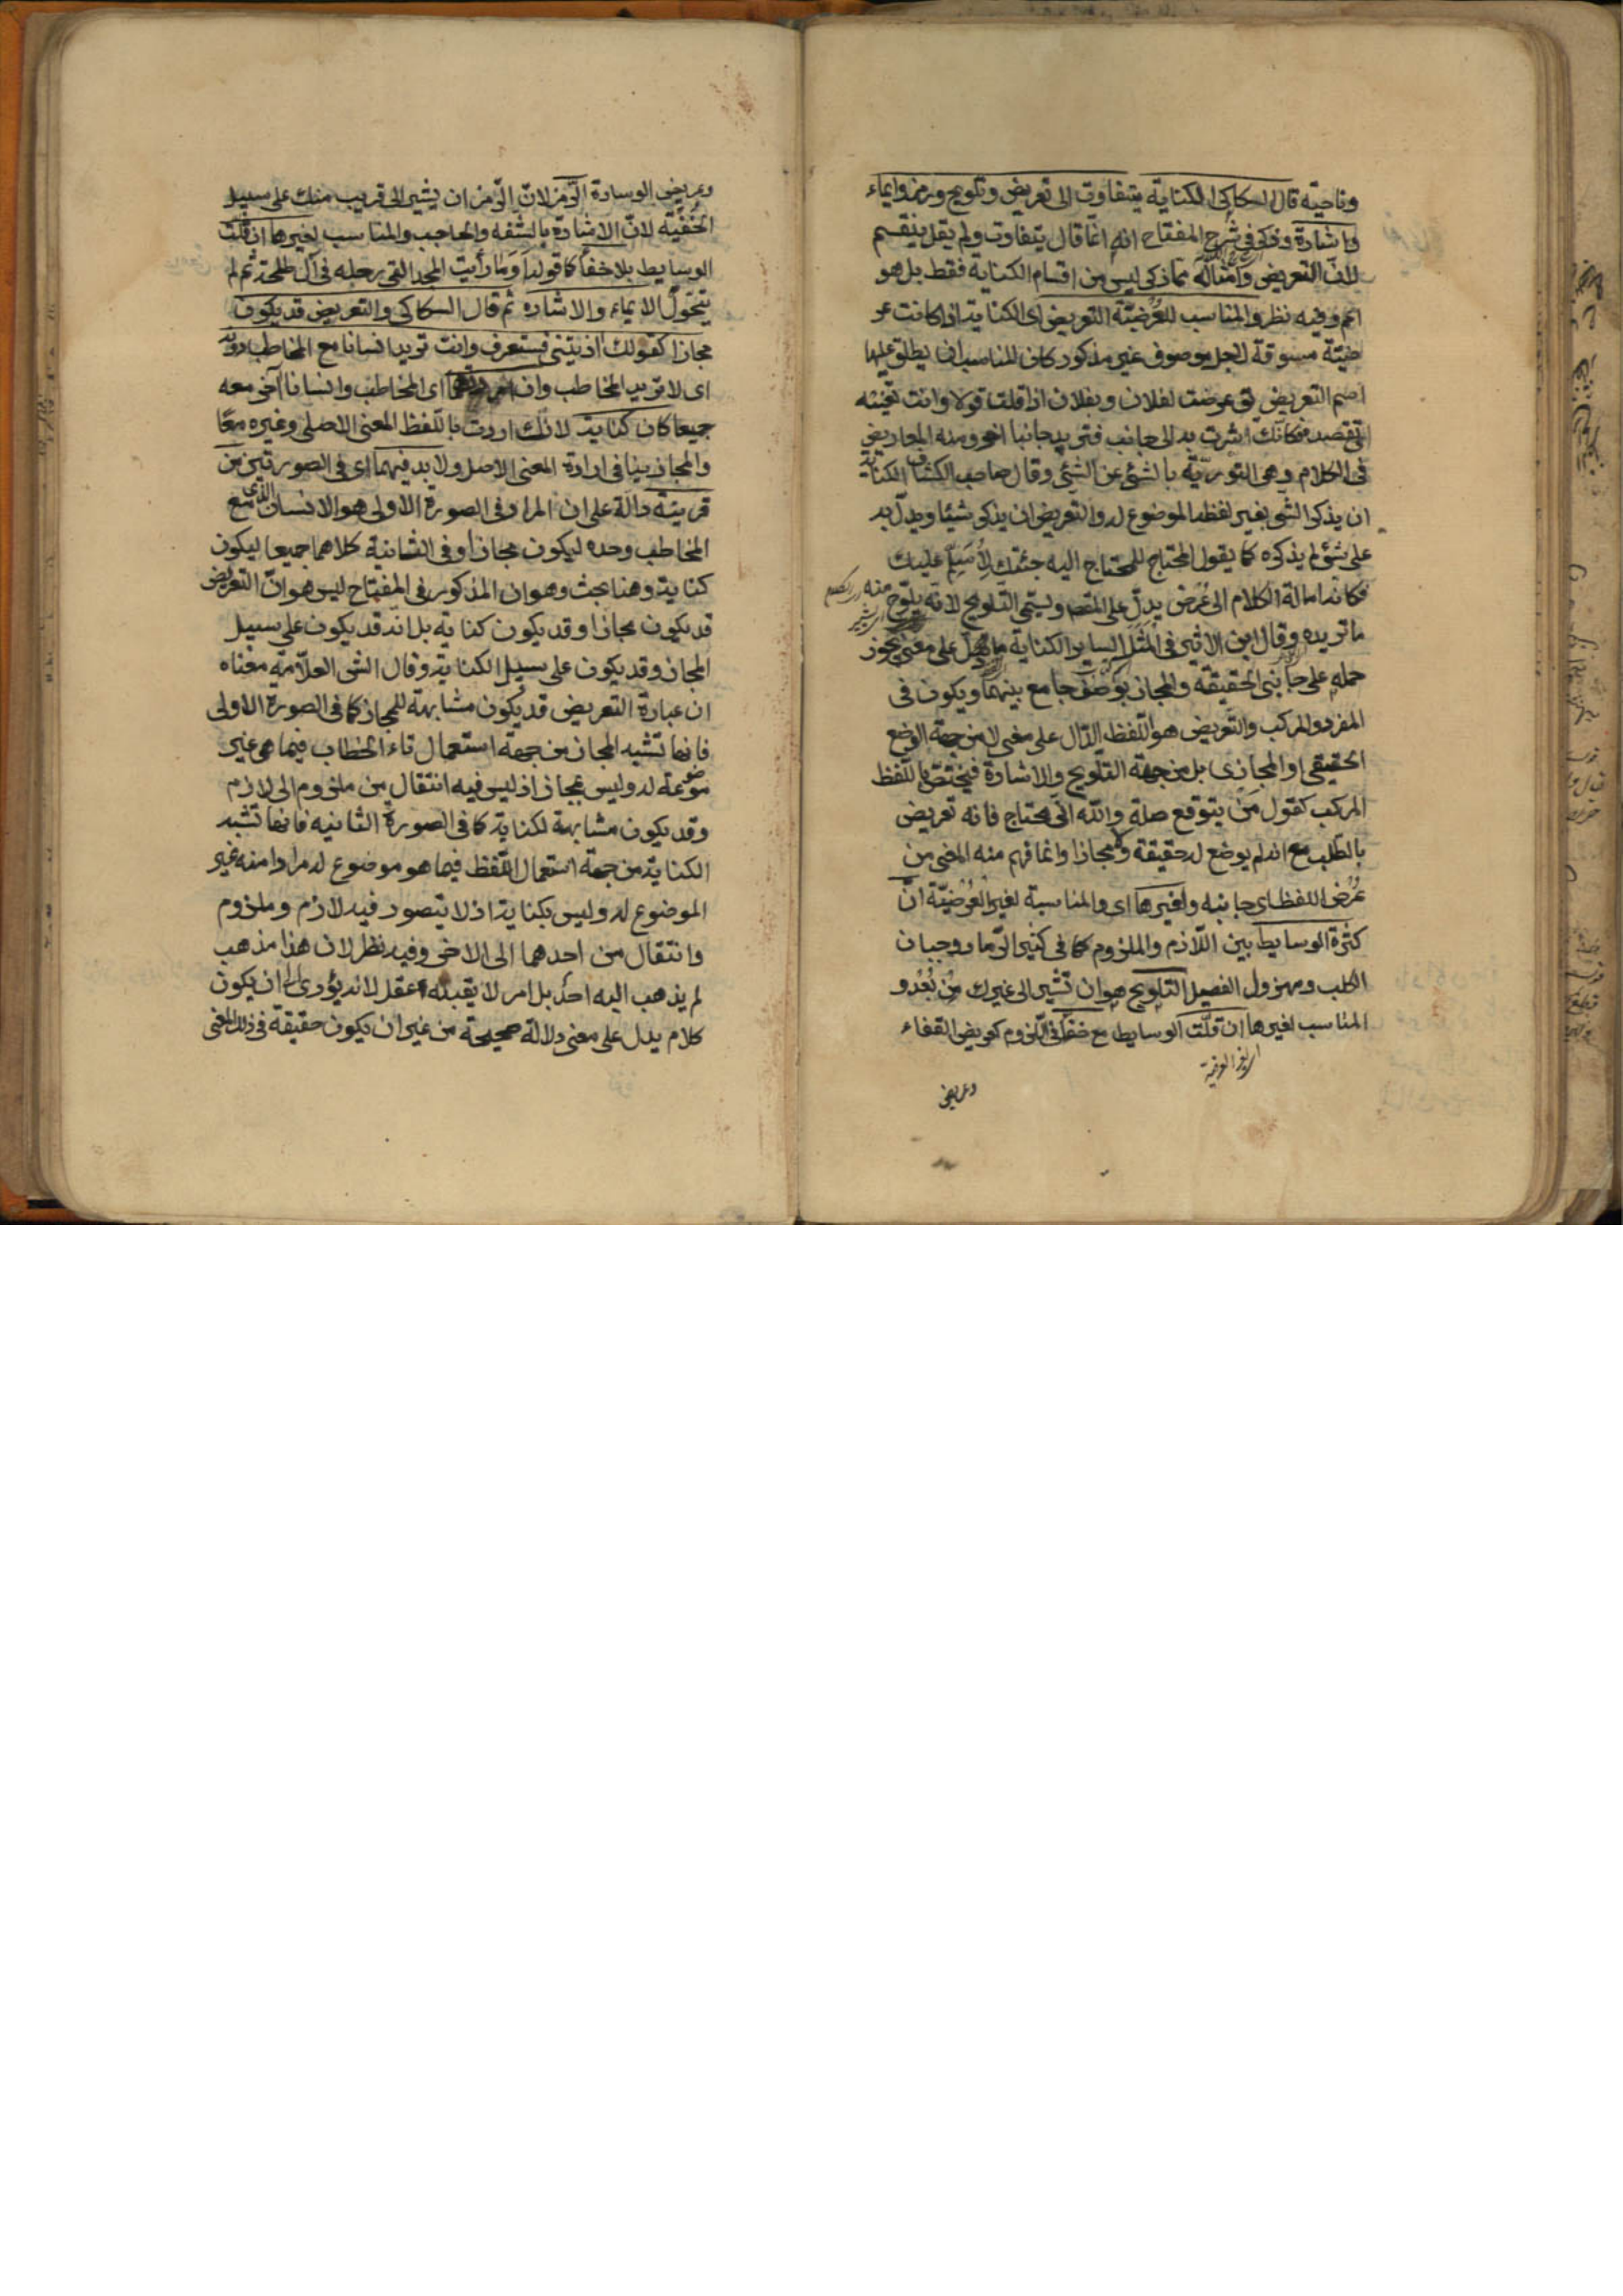 وناحية قال السكاكى الكناية يتفاوت الى تعريض وتلويح ورمز وايماء
واشارة وذكر فى شرح المفتاح انه انما قال يتفاوت ولم يقل ينقسم
لان التعريض وامثاله مما ذكر ليس من اقسام الكناية فقط بل هو
اعم وفيه نظر والمناسب للعرضيّة التعريض اى الكناية اذا كانت عر
ضيّة مسوقة لاجل موصوف غير مذكور كان المناسب ان يطلق عليها
اسم التعريض يق عرضت لفلان وبفلان اذا قلت قولا وانت تعنيه
اى تقصد فكانّك اشرت به الى جانب فتريد جانبا اخر ومنه المعاريض
فى الكلام وهى التوريّة بالشئ عن الشئ وقال صاحب الكشاف الكناية
ان يذكر الشى بغير لفظه الموضوع له والتعريض ان يذكر شيئا ويدلّ به
على شئ لم يذكره كما يقول المحتاج للمحتاج اليه جئتك لأسلّم عليك
فكانه امالة الكلام الى عُرض يدلّ على المقصد ويسمّى التلويح لانه يلوّح منه
ما تريده وقال ابن الاثير فى المثل الساير الكناية ما دل على معنى يجوز
حمله على جانبى الحقيقة والمجاز بوصف جامع بينهما ويكون فى
المفرد والمركب والتعريض هو اللّفظ الدّال على معنى لا من جهة الوضع
الحقيقى او المجازى بل من جهة التلويح والاشارة فيختصّ باللّفظ
المركب كقول من يتوقع صلة والله انّى محتاج فانه تعريض
بالطّلب مع انه لم يوضع له حقيقة ولا مجازا وانما فهم منه المعنى من
عُرض اللفظ اى جانبه ولغيرها اى والمناسبة لغير العُرضيّة ان
كثرة الوسايط بين اللّازم والملزوم كما فى كثير الرّماد وجبان
الكلب ومهزول الفصيل التلويح هو ان تشير الى غيرك من بُعد و
المناسب لغيرها ان قلّت الوسايط مع خفاء فى اللّزوم كعريض القفاء
وعريض
وعريض الوسادة الرّمز لانّ الرّمز ان يشير الى قريب منك على سبيل
الخُفيّة لانّ الاشارة بالشفه والحاجب والمناسب لغيرها ان قلت
الوسايط بلا خفأ كما قوله اوَ ما رأيت المجد القى رحله فى آل طلحة ثم لم
يتحوّل الايماء والاشاره ثم قال السكاكى والتعريض قد يكون
مجازا كقولك آذيتنى فستعرف وانت تريد انسانا مع المخاطب دونه
اى لا تريد المخاطب وان اردتهما اى المخاطب وانسانا آخر معه
جميعا كان كناية لانّك اردت باللّفظ المعنى الاصلى وغيره معًا
والمجاز ينافى ارادة المعنى الاصل ولا بد فيهما اى فى الصورتين من
قرينة دالة على ان المراد فى الصورة الاولى هو الانسان الذى مع
المخاطب وحده ليكون مجازا وفى الثانية كلاهما جميعا ليكون
كناية وهنا بحث وهو ان المذكور فى المفتاح ليس هو انّ التعريض
قد يكون مجازا وقد يكون كناية بل انه قد يكون على سبيل
المجاز وقد يكون على سبيل الكناية وقال الش العلّامة معناه
ان عبارة التعريض قد يكون مشابهة للمجاز كما فى الصورة الاولى
فانها تشبه المجاز من جهة استعمال تاء الخطاب فيما هى غير
موضوعة له وليس بمجاز اذ ليس فيه انتقال من ملزوم الى لازم
وقد يكون مشابهة لكناية كما فى الصورة الثانيه فانها تشبه
الكناية من جهة استعمال اللّفظ فيما هو موضوع له مرادا منه غير
الموضوع له وليس بكناية اذ لا يتصور فيه لازم وملزوم
وانتقال من احدهما الى الاخر وفيه نظر لان هذا مذهب
لم يذهب اليه احدٌ بل امر لا يقبله عقل لانه يؤدى الى ان يكون
كلام يدل على معنى دلالة صحيحة من غير ان يكون حقيقة فى ذلك المعنى